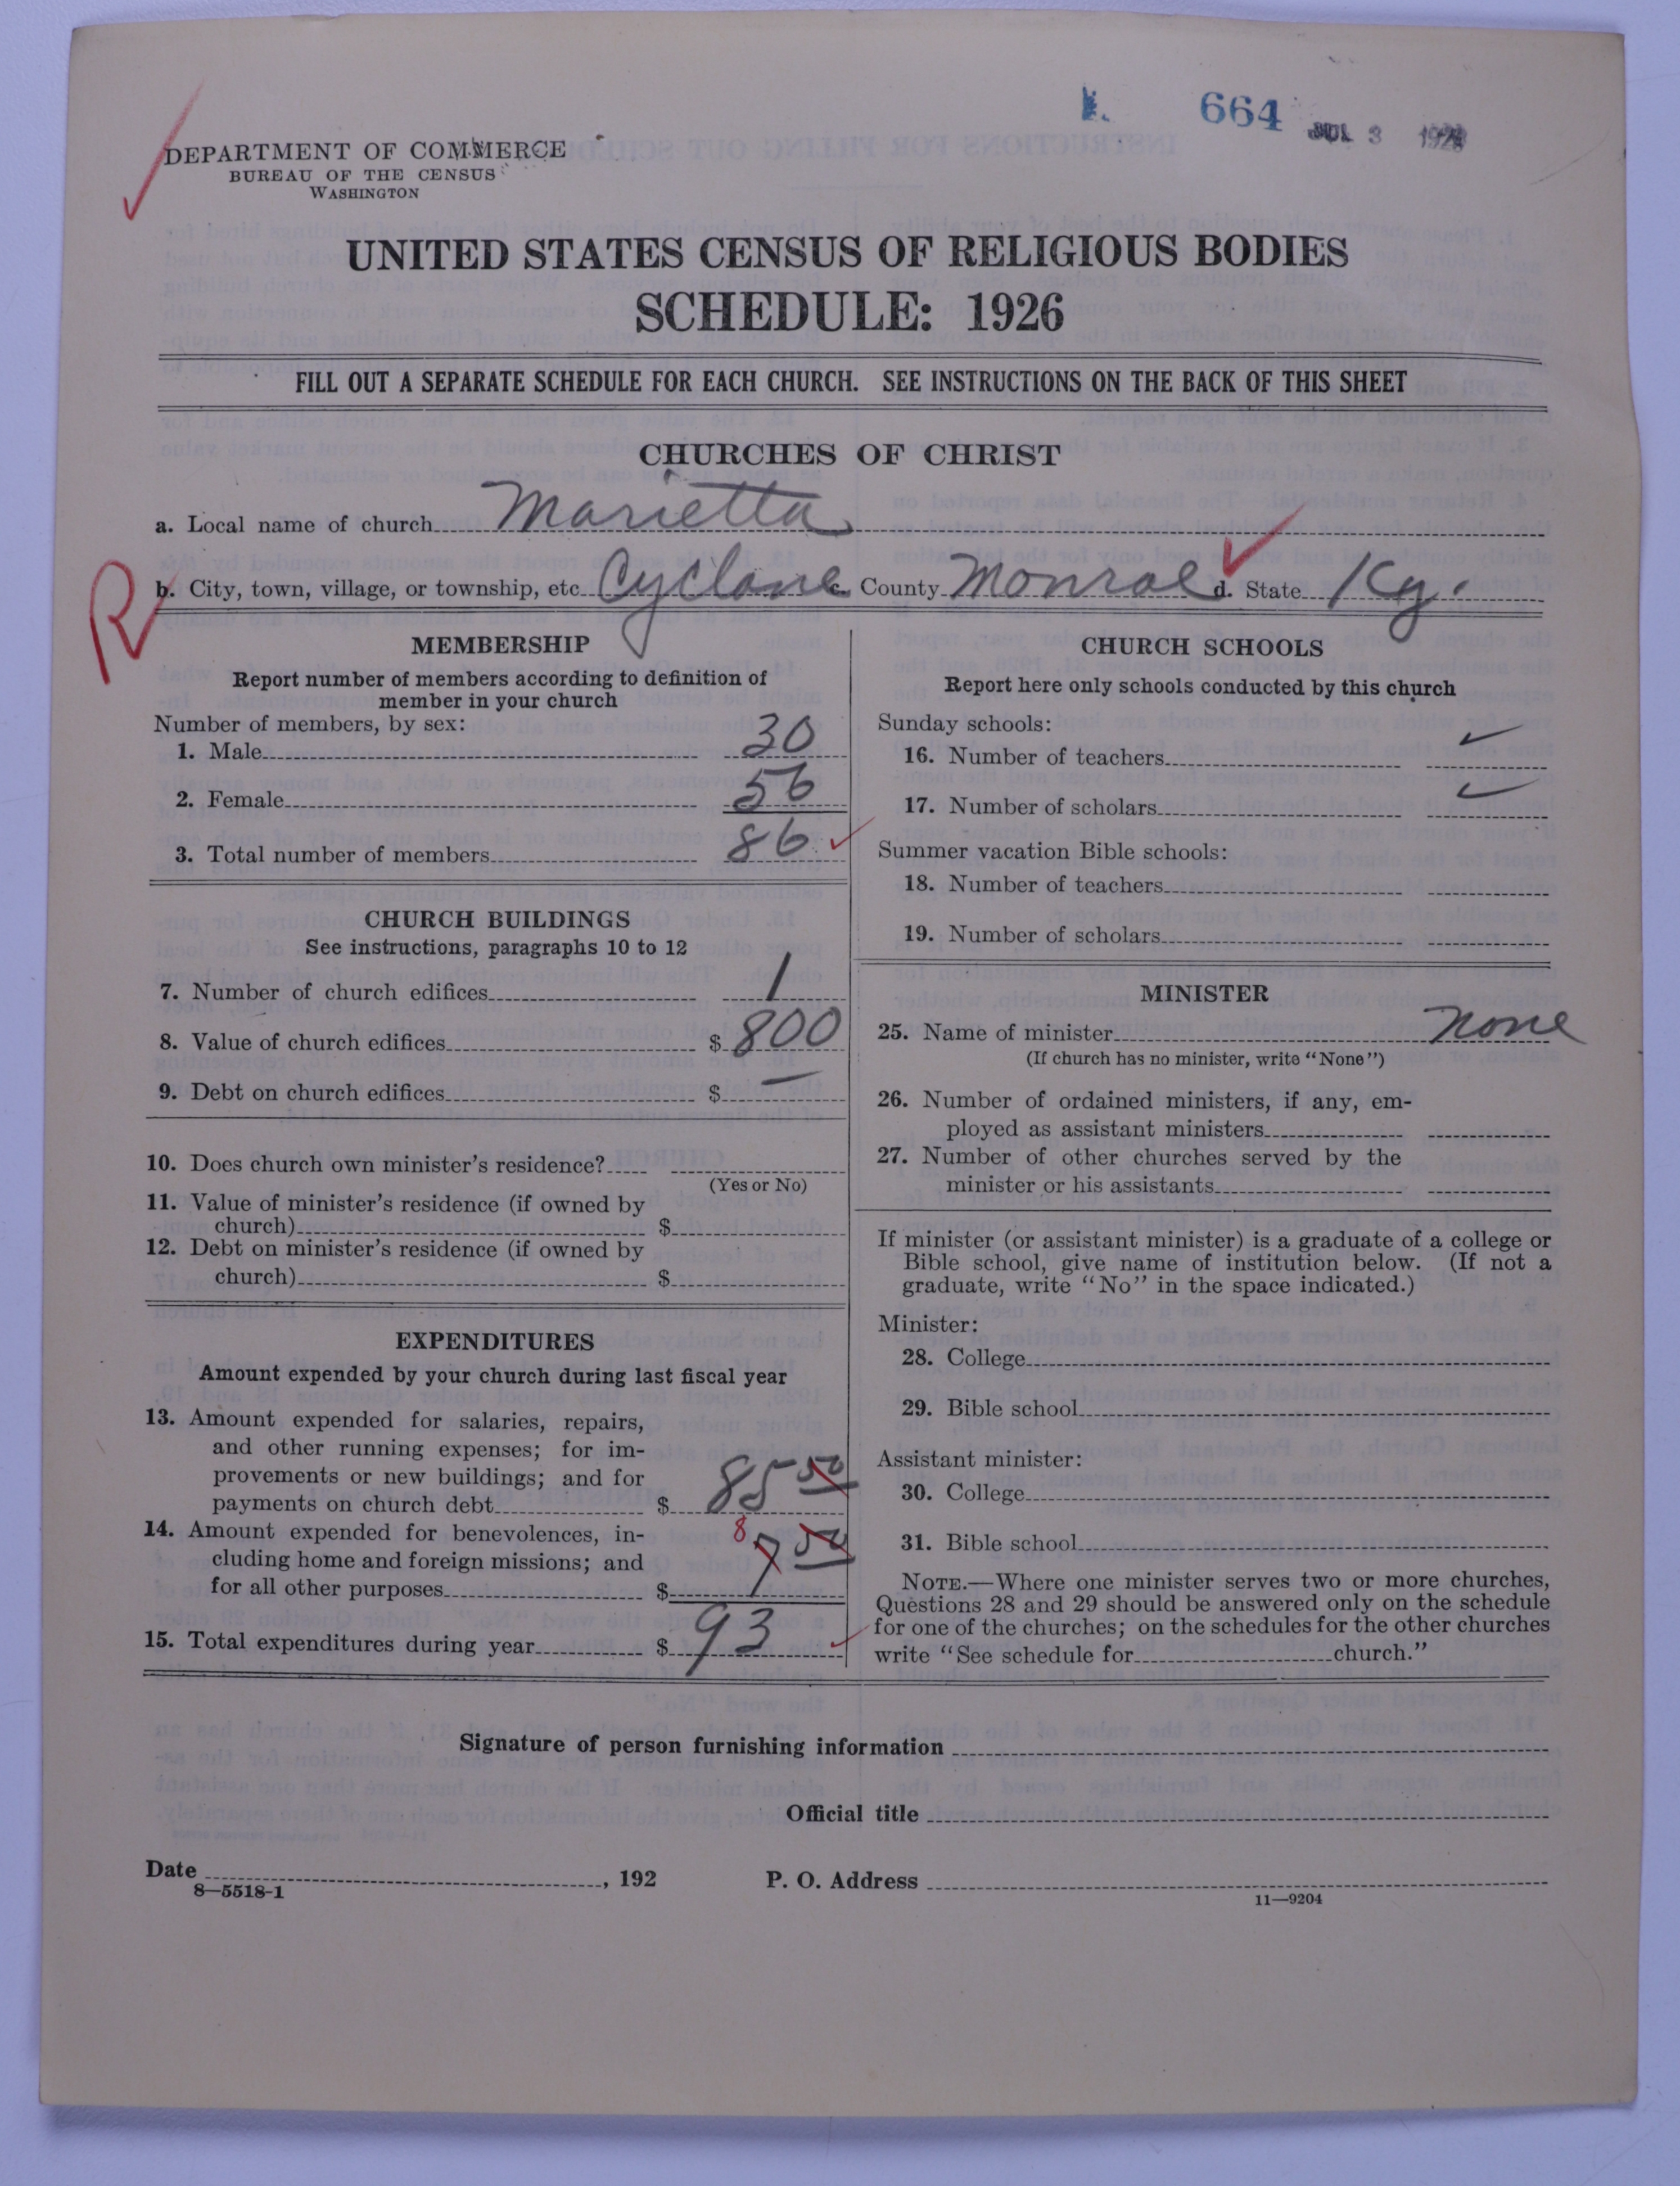 664 JUL 3 1928
DEPARTMENT OF COMMERCE
BUREAU OF THE CENSUS
WASHINGTON
UNITED STATES CENSUS OF RELIGIOUS BODIES
SCHEDULE: 1926
FILL OUT A SEPARATE SCHEDULE FOR EACH CHURCH. SEE INSTRUCTIONS ON THE BACK OF THIS SHEET
CHURCHES OF CHRIST
a. Local name of church Marietta
R
b. City, town, village, or township, etc. Cyclone c. County Monroe d. State Ky.
MEMBERSHIP
Report number of members according to definition of
member in your church
Number of members, by sex:
1. Male 30
2. Female 56
3. Total number of members 86
CHURCH BUILDINGS
See instructions, paragraphs 10 to 12
7. Number of church edifices 1
8. Value of church edifices $ 800
9. Debt on church edifices $ —
10. Does church own minister's residence?
(Yes or No)
11. Value of minister's residence (if owned by
church) $
12. Debt on minister's residence (if owned by
church) $
EXPENDITURES
Amount expended by your church during last fiscal year
13. Amount expended for salaries, repairs,
and other running expenses; for im-
provements or new buildings; and for
payments on church debt $ 85 50
14. Amount expended for benevolences, in-
cluding home and foreign missions; and
for all other purposes $ 8 7 50
15. Total expenditures during year $ 93
CHURCH SCHOOLS
Report here only schools conducted by this church
Sunday schools:
16. Number of teachers
17. Number of scholars
Summer vacation Bible schools:
18. Number of teachers
19. Number of scholars
MINISTER
25. Name of minister none
(If church has no minister, write "None")
26. Number of ordained ministers, if any, em-
ployed as assistant ministers
27. Number of other churches served by the
minister or his assistants
If minister (or assistant minister) is a graduate of a college or
Bible school, give name of institution below. (If not a
graduate, write "No" in the space indicated.)
Minister:
28. College
29. Bible school
Assistant minister:
30. College
31. Bible school
NOTE.—Where one minister serves two or more churches,
Questions 28 and 29 should be answered only on the schedule
for one of the churches; on the schedules for the other churches
write "See schedule for church."
Signature of person furnishing information
Official title
Date , 192 P. O. Address
8—5518-1
11—9204